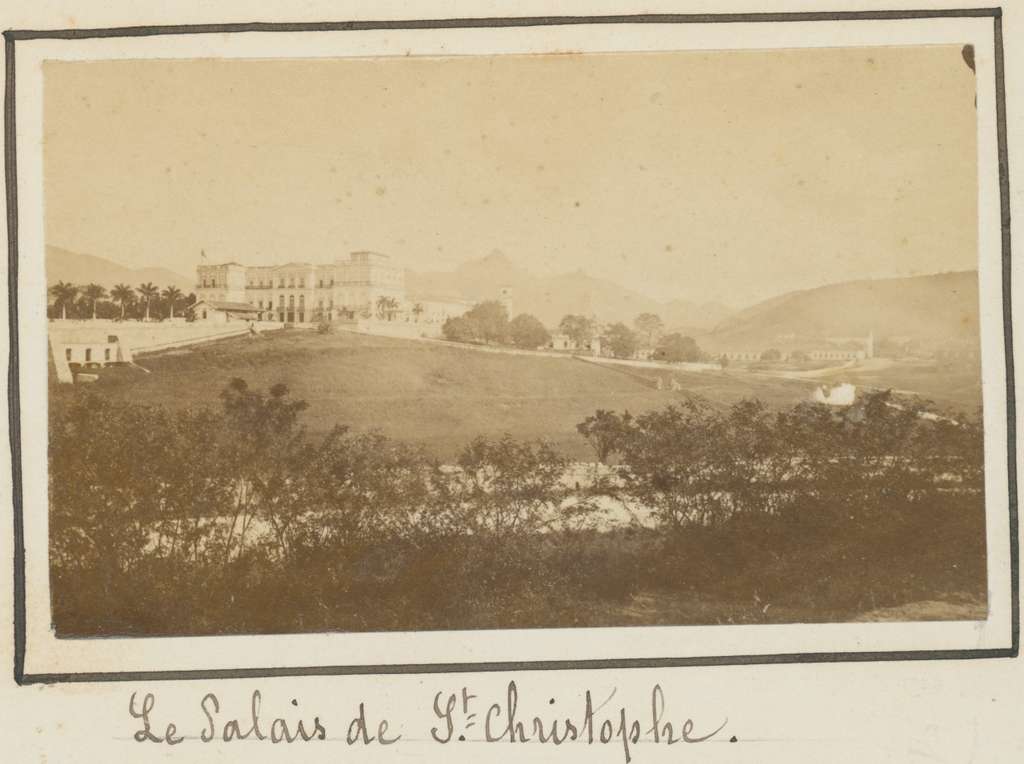 Le Palais de St. Christophe.